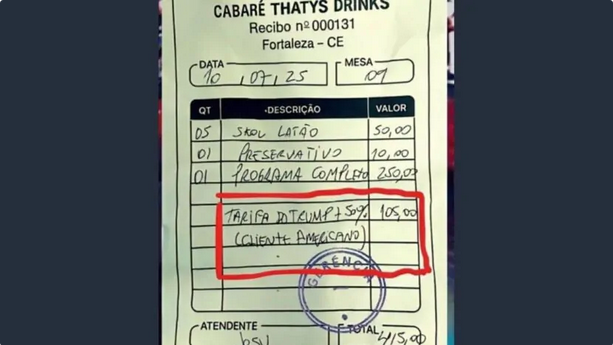 CABARÉ THATYS DRINKS
Recibo nº 000131
Fortaleza – CE
DATA 10, 07, 25 MESA 09
QT -DESCRIÇÃO VALOR
05 SKOL LATÃO 50,00
01 PRESERVATIVO 10,00
01 PROGRAMA COMPLETO 250,00
TARIFA DO TRUMP + 50% 105,00
(CLIENTE AMERICANO)
GERÊNCIA
ATENDENTE TOTAL 415,00